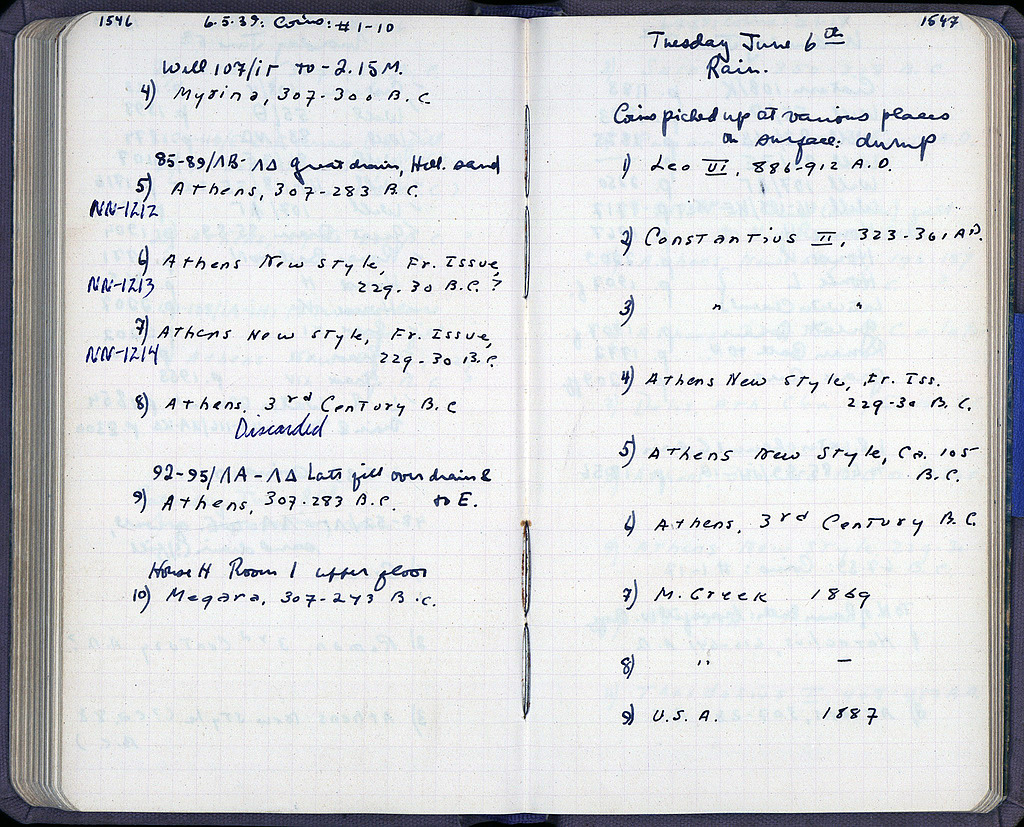 1546
6.5.39: Coins: #1-10
Well 107/ΙΓ to -2.15 M.
4) Myrina, 307-300 B.C
85-89/ΛΒ-ΛΔ great drain, Hell. sand
5) Athens, 307-283 B.C.
NN-1212
6) Athens New Style, Fr. Issue,
NN-1213 229-30 B.C.?
7) Athens New Style, Fr. Issue,
NN-1214 229-30 B.C.
8) Athens, 3rd Century B.C
Discarded
92-95/ΛΑ-ΛΔ Late fill over drain &
9) Athens, 307-283 B.C. to E.
House H Room 1 upper floor
10) Megara, 307-243 B.C.
1547
Tuesday June 6th
Rain.
Coins picked up at various places
on surface: dump
1) Leo VI, 886-912 A.D.
2) Constantius II, 323-361 A.D.
3) " "
4) Athens New Style, Fr. Iss.
229-30 B.C.
5) Athens New Style, Ca. 105
B.C.
6) Athens, 3rd Century B.C.
7) M. Greek 1869
8) " —
9) U.S.A. 1887